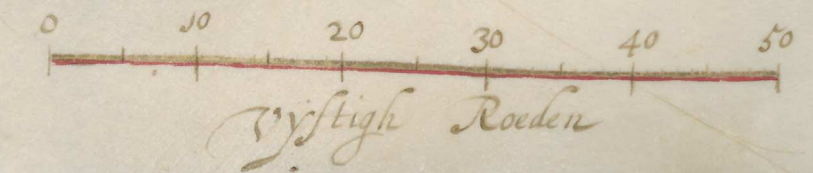 0 10 20 30 40 50
Vyftigh Roeden